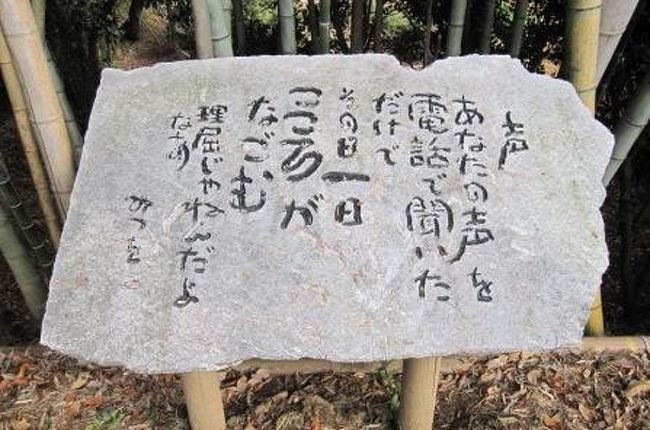 声
あなたの声を
電話で聞いた
だけで
その日一日
こころが
なごむ
理屈じゃねんだよ
なあ
みつを